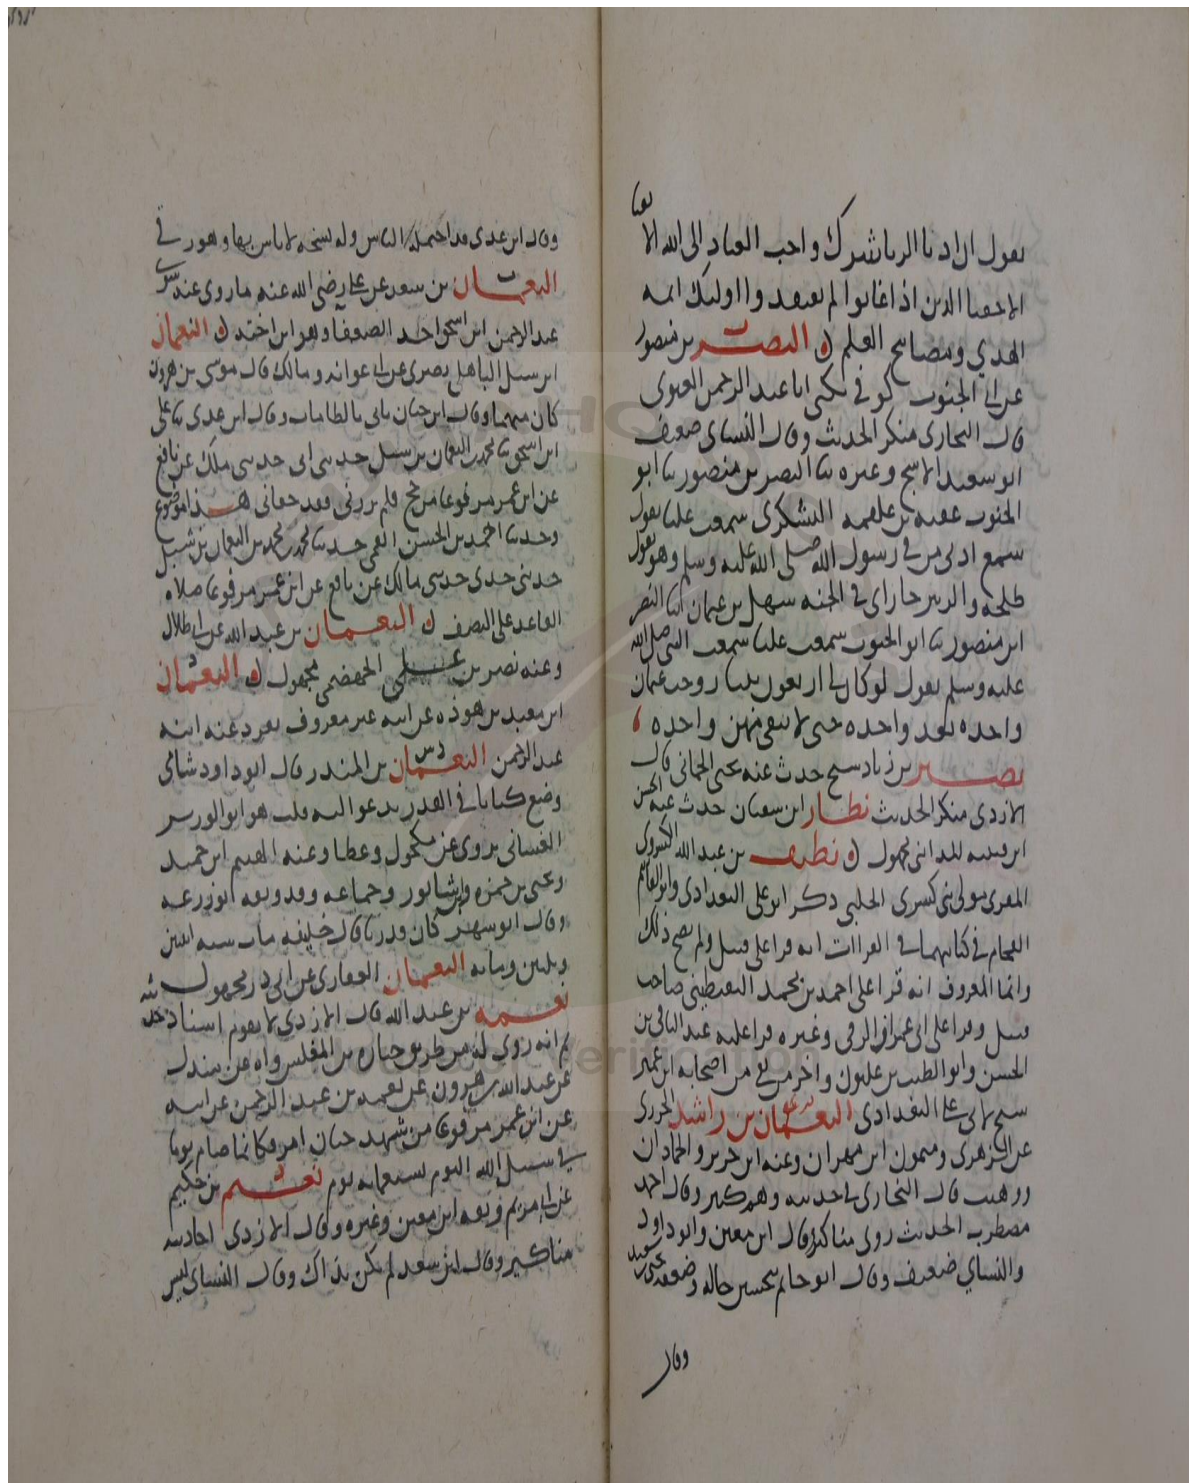 يقول ان ادنا الريا شرك واحب العباد الى الله الا
تقيا
الاخفيا الذين اذا غابوا لم يفتقدوا اوليك ايمه
الهدي ومصابيح العلم النضر بن منصور
عن ابي الجنوب كوفي يكنى ابا عبد الرحمن
قال البخاري منكر الحديث وقال النساي ضعيف
ابو سعيد الاشج وغيره ثنا النضر بن منصور ثنا ابو
الجنوب عقبه بن علقمه اليشكري سمعت عليا يقول
سمع اذني من في رسول الله صلى الله عليه وسلم وهو يقول
طلحه والزبير جاراي في الجنه سهل بن عثمان ثنا النضر
ابن منصور ثنا ابو الجنوب سمعت عليا سمعت النبي صلى الله
عليه وسلم يقول لو كان لي اربعون بنتا زوجت عثمان
واحده بعد واحده حتى لا يبقى منهن واحده
نصير بن زياد شيخ حدث عنه يحيى الحماني قال
الازدي منكر الحديث نطار ابن سفيان حدث عنه الحسن
ابن قتيبه المدائني مجهول نظيف بن عبد الله الكسروي
المقري مولى بني كسرى الحلبي ذكر ابو علي البغدادي وابن الفحام
الفحام في كتابيهما في القراات انه قرا على قنبل ولم يصح ذلك
وانما المعروف انه قرا على احمد بن محمد اليقطيني صاحب
قنبل وقرا على ابي عمران الرقي وغيره قرا عليه عبد الباقي بن
الحسن وابو الطيب بن غلبون واخر من بقي من اصحابه ابن عمير
شيخ لابي علي البغدادي النعمان بن راشد الجزري
عن الزهري وميمون ابن مهران وعنه ابن جرير والحمادان
ووهيب قال البخاري في حديثه وهم كثير وقال احمد
مضطرب الحديث روى مناكير وقال ابن معين وابو داود
والنساي ضعيف وقال ابو حاتم يحسن حاله وضعفه يحيى بن سعيد
وقال
وقال ابن عدي قد احتمله الناس وله نسخه لاباس بها وهو رقي
النعمان بن سعد عن علي رضي الله عنه ما روى عنه سوى
عبد الرحمن ابن اسحق احد الضعفا وهو ابن اخته النعمان
ابن شبل الباهلي بصري عن ابي عوانه ومالك قال موسى بن هرون
كان متهما وقال ابن حبان ياتي بالطامات وقال ابن عدي ثنا علي
ابن اسحق ثنا محمد بن النعمان بن شبل حدثني ابي حدثني ملك عن نافع
عن ابن عمر مرفوعا من حج فلم يزرني فقد جفاني هذا موضوع
وحدثنا احمد بن الحسن القمي حدثنا محمد بن محمد بن النعمان بن شبل
حدثني جدي حدثني مالك عن نافع عن ابن عمر مرفوعا صلاه
القاعد على النصف النعمان بن عبد الله عن ابي ظلال
وعنه نصر بن علي الجهضمي مجهول النعمان
ابن معبد بن هوذه عن ابيه غير معروف تفرد عنه ابنه
عبد الرحمن النعمان بن المنذر قال ابو داود شامي
وضع كتابا في القدر يدعو اليه قلت هو ابو الوزير
الغساني يروي عن مكحول وعطا وعنه الهيثم ابن حميد
ويحيى بن حمزه وابن شابور وجماعه وقد وثقه ابو زرعه
وقال ابو مسهر كان قدريا قال خليفه مات سنه اثنين
وثلثين ومائه النعمان الغفاري عن ابي ذر مجهول
نعمه بن عبد الله قال الازدي لا يقوم اسناد حديثه
ثم انه روى له من طريق جباره بن المغلس واه عن مندل
عن عبد الله بن هرون عن نعمه بن عبد الرحمن عن ابيه
عن ابن عمر مرفوعا من شهد جنازه امرء كانما صام يوما
في سبيل الله اليوم بسبعمائه يوم نعيم بن حكيم
عن ابي مريم وثقه ابن معين وغيره وقال الازدي احاديثه
مناكير وقال ابن سعد لم يكن بذاك وقال النساي ليس